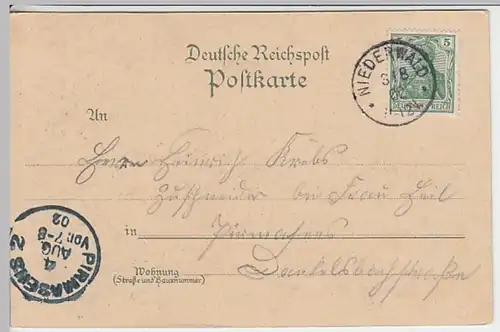 Deutsche Reichspost
Postkarte
5
DEUTSCHES REICH
NIEDERWALD
3/8
02
11-12
An
Herrn Heinrich Krebs
Zuschneider bei Frau Heil
in Pirmasens
Wohnung
(Straße und Hausnummer)
Dankelsbachstraße
PIRMASENS 2
4
AUG
Vor. 7-8
02